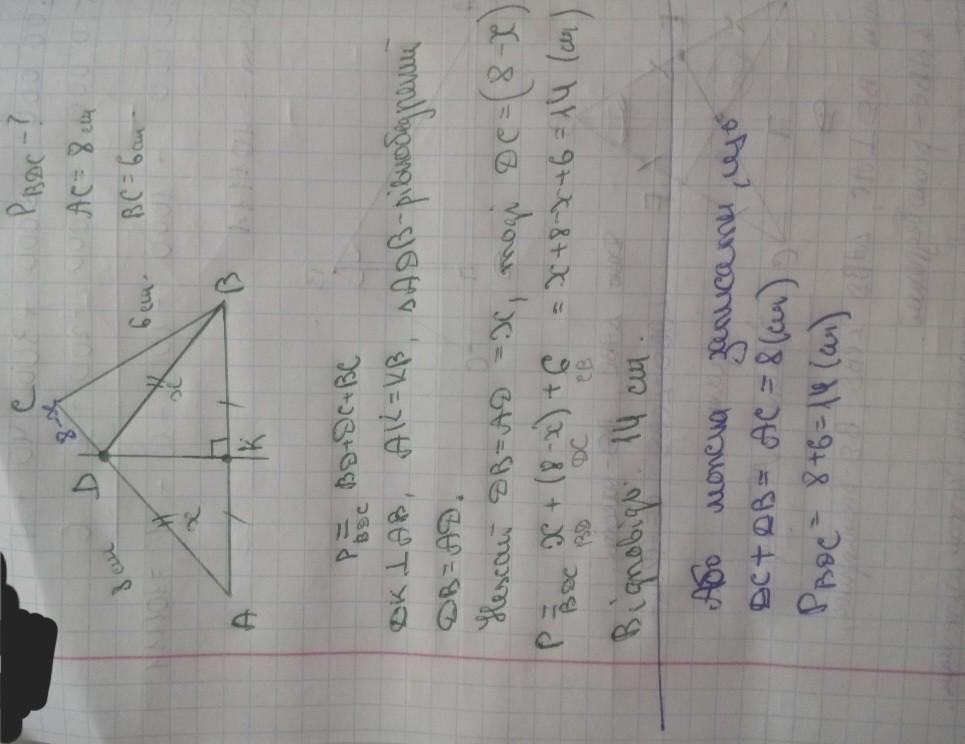 P_BDC - ?
AC = 8 см
BC = 6 см
C
8-x
D
8 см
6 см.
x
x
A
K
B
P_BDC = BD + DC + BC
DK ⊥ AB, AK = KB, △ADB - рівнобедрений
DB = AD.
Нехай DB = AD = x, тоді DC = (8 - x)
P_BDC = x + (8 - x) + 6 = x + 8 - x + 6 = 14 (см)
BD DC CB
Відповідь. 14 см.
Або можна записати, що
DC + DB = AC = 8 (см)
P_BDC = 8 + 6 = 14 (см)